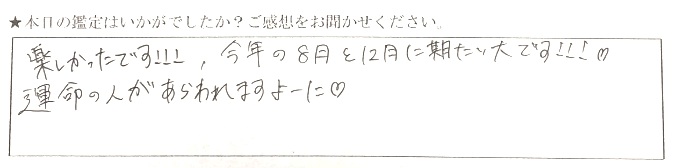 ★本日の鑑定はいかがでしたか？ご感想をお聞かせください。
楽しかったです!!!,今年の8月と12月に期たい大です!!!♡
運命の人があらわれますよーに♡